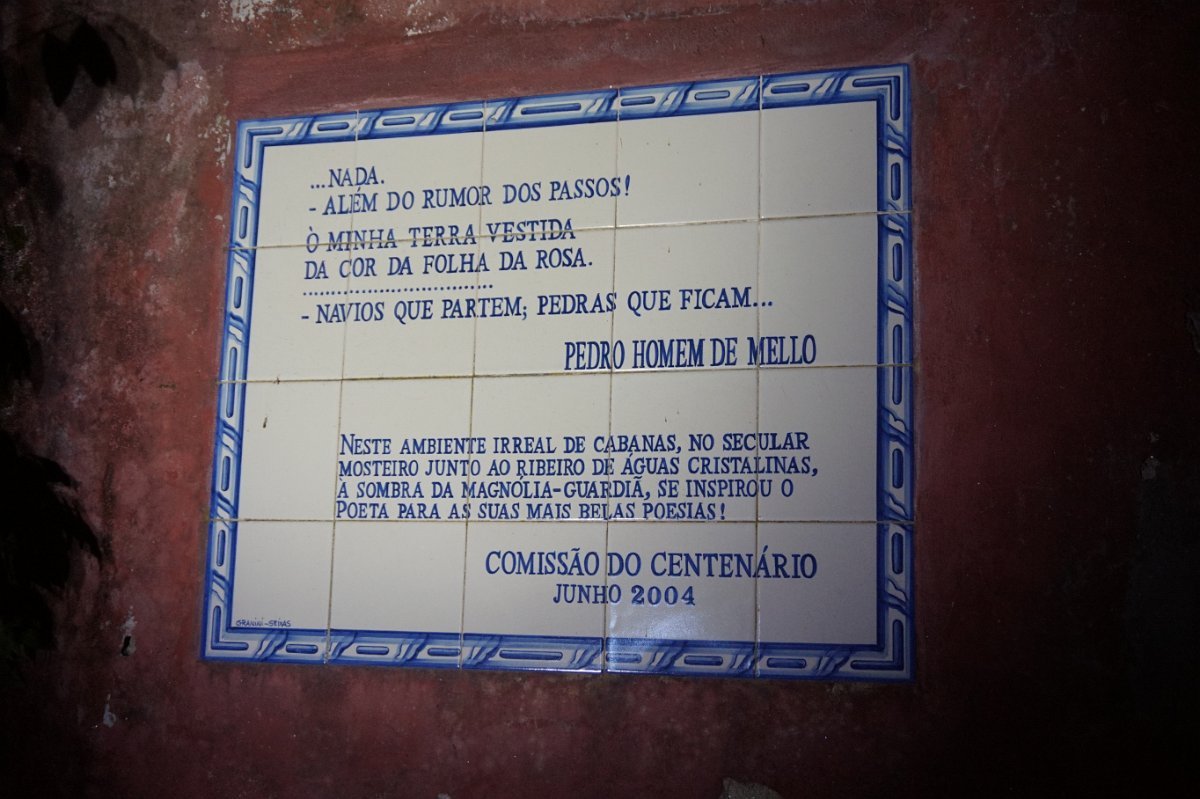 ...NADA.
- ALÉM DO RUMOR DOS PASSOS!
Ò MINHA TERRA VESTIDA
DA COR DA FOLHA DA ROSA.
..................................
- NAVIOS QUE PARTEM; PEDRAS QUE FICAM...
PEDRO HOMEM DE MELLO
NESTE AMBIENTE IRREAL DE CABANAS, NO SECULAR
MOSTEIRO JUNTO AO RIBEIRO DE ÁGUAS CRISTALINAS,
À SOMBRA DA MAGNÓLIA-GUARDIÃ, SE INSPIROU O
POETA PARA AS SUAS MAIS BELAS POESIAS!
COMISSÃO DO CENTENÁRIO
JUNHO 2004